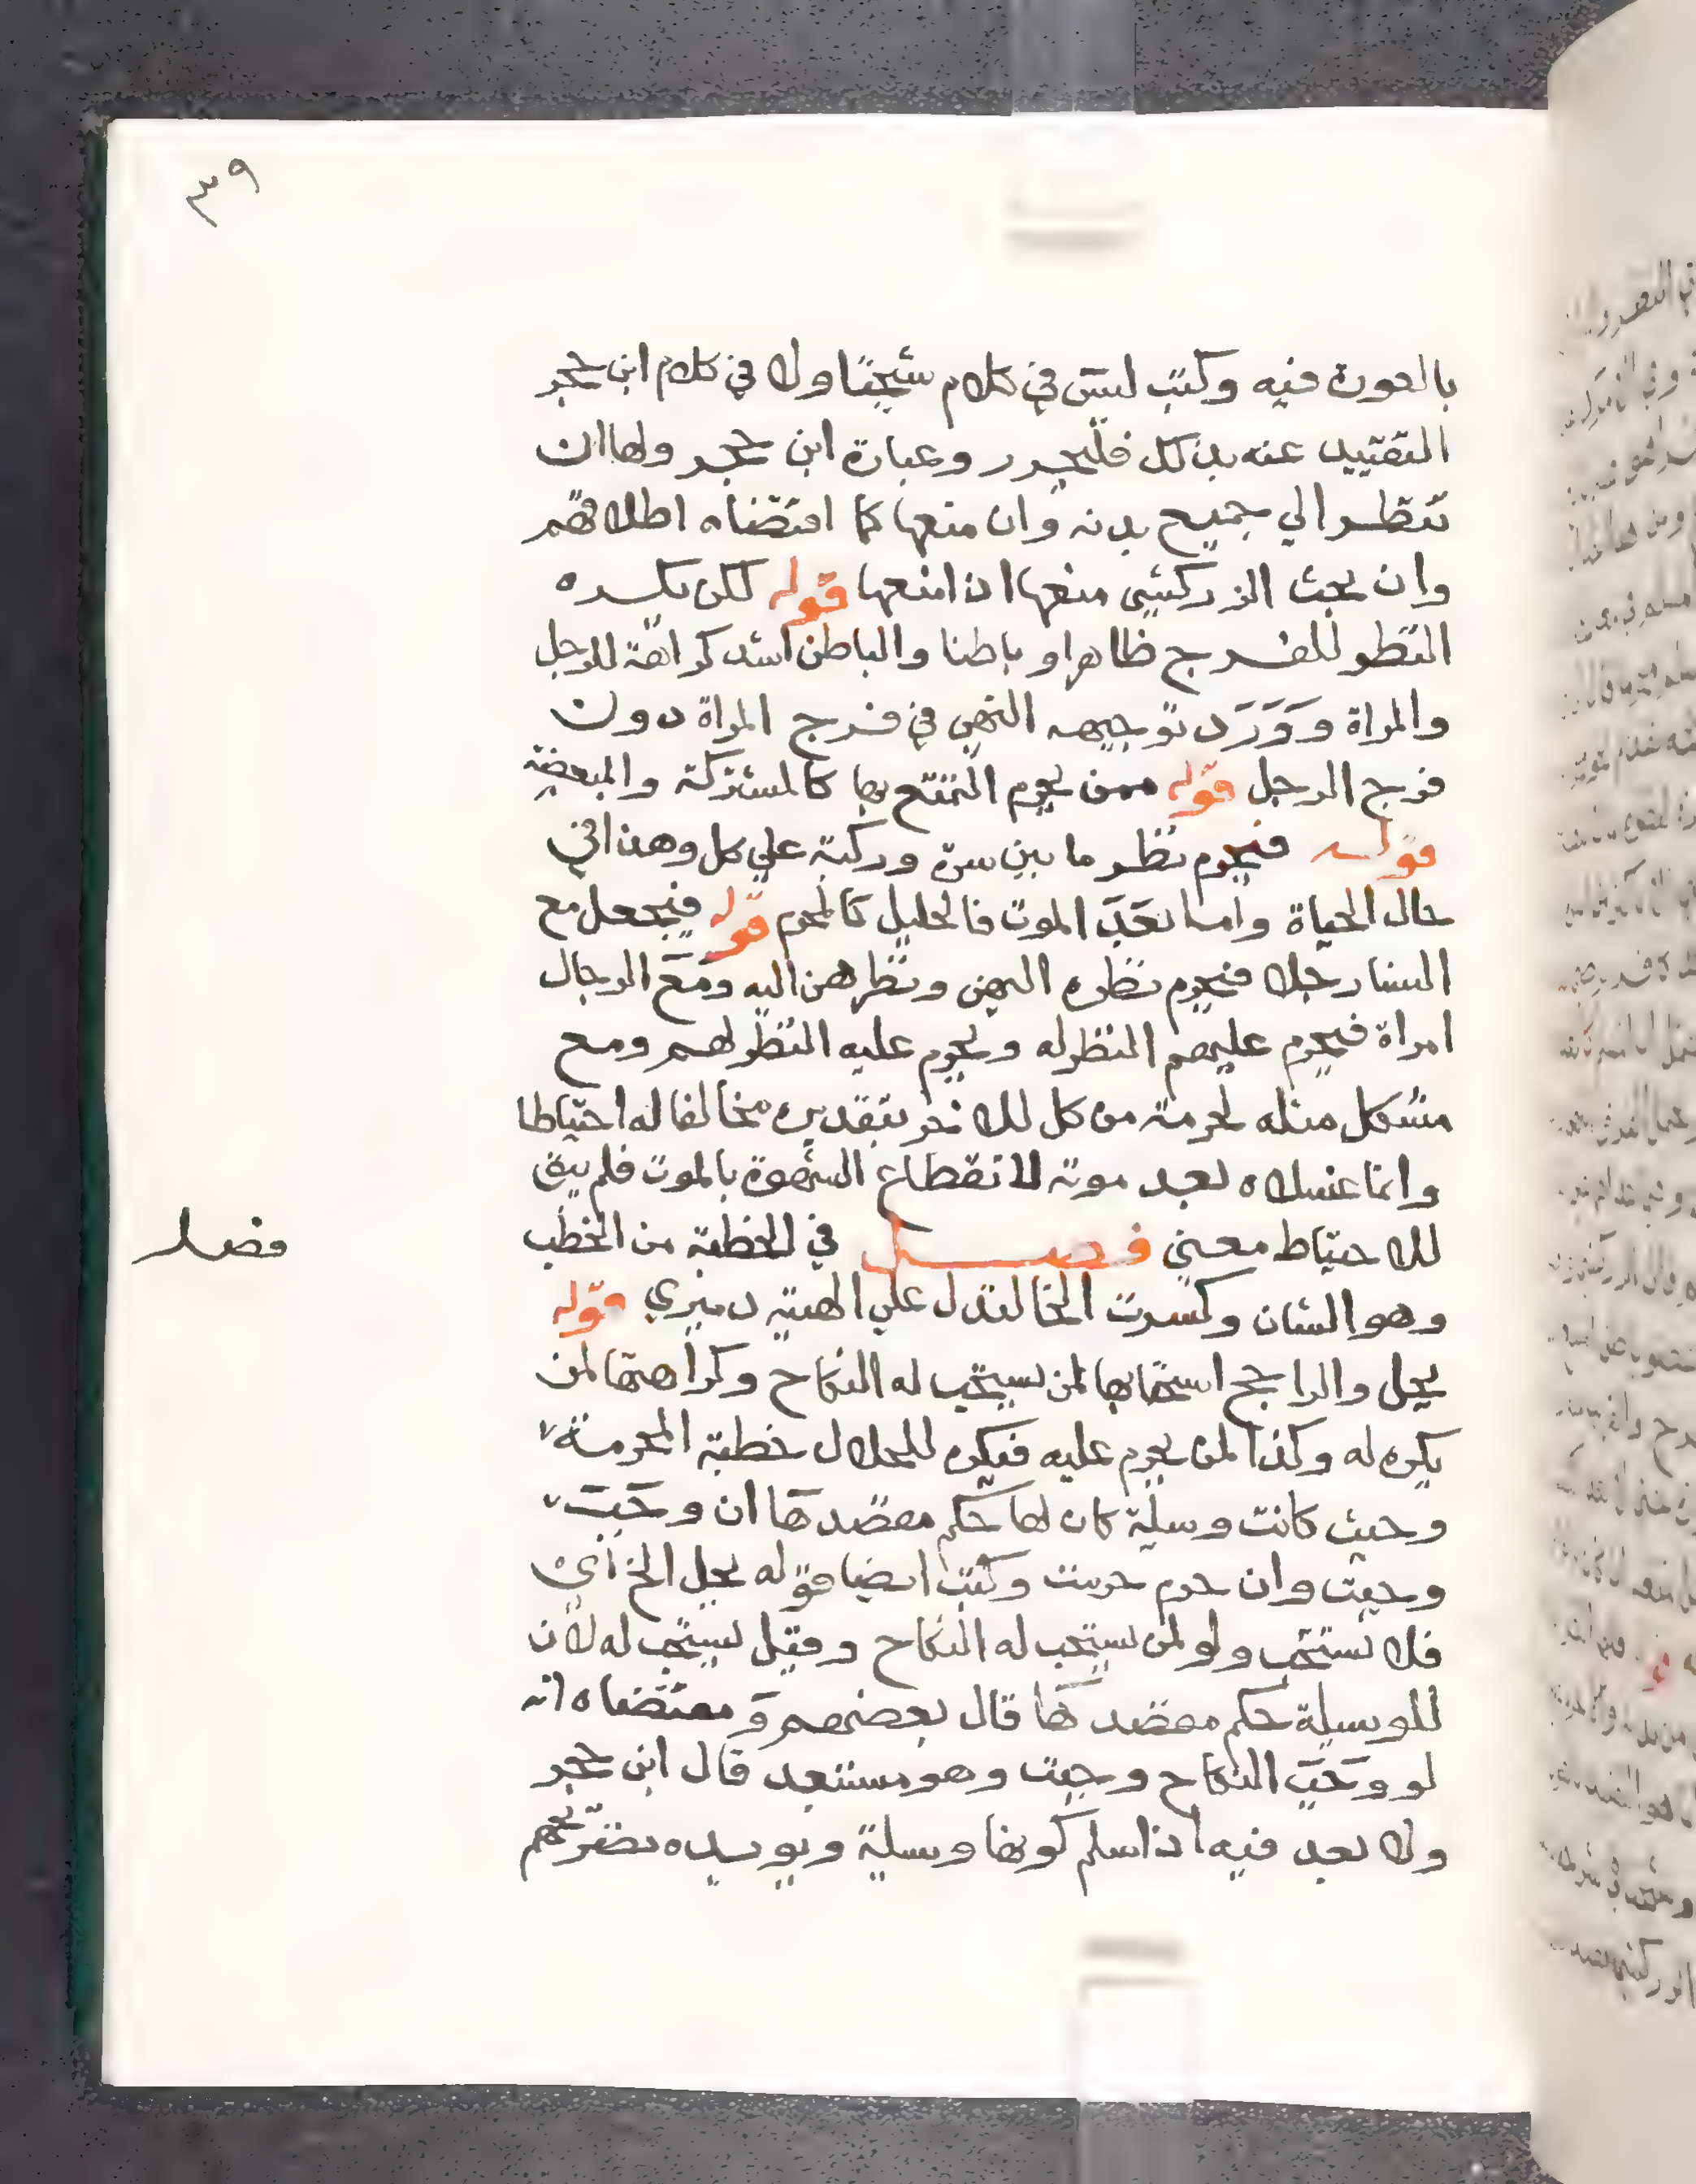 ٣٩
بالعورة فيه وكتب ليس في كلام شيخنا ولا في كلام ابن حجر
التقييد عنه بذلك فليحرر وعبارة ابن حجر ولها ان
تنظر الي جميع بدنه وان منعها كما اقتضاه اطلاقهم
وان بحث الزركشي منعها اذا منعها قوله لكن يكره
النظر للفرج ظاهرا و باطنا والباطن اشد كراهة للرجل
والمراة وورد توجيه النهي في فرج المراة دون
فرج الرجل قوله ممن يحرم التمتع بها كالمشتركة والمبعضة
قوله فيحرم نظر ما بين سرة وركبة علي كل وهذا في
حال الحياة واما بعد الموت فالحليل كالمحرم قوله فيجعل مع
النسا رجلا فيحرم نظره اليهن ونظرهن اليه ومع الرجال
امراة فيحرم عليهم النظر له ويحرم عليه النظر لهم ومع
مشكل مثله لحرمة من كل للاخر بتقديره مخالفا له احتياطا
وانما غسلاه بعد موته لانقطاع الشهوة بالموت فلم يبق
للاحتياط معني فصل في الخطبة من الخطب
فصل
وهو الشان وكسرت الخا لتدل علي الهيئة دميري قوله
يحل والراجح استحبابها لمن يستحب له النكاح وكراهتها لمن
يكره له وكذا لمن يحرم عليه فيكره للحلال خطبة المحرمة
وحيث كانت وسيلة كان لها حكم مقصدها ان وجبت
وجبت وان حرم حرمت وكتب ايضا قوله يحل الخ اي
فلا تستحب ولو لمن يستحب له النكاح وقيل تستحب له لان
للوسيلة حكم مقصدها قال بعضهم و مقتضاه انه
لو وجب النكاح وجبت وهو مستبعد قال ابن حجر
ولا بعد فيه اذا سلم كونها وسيلة ويويده تصريحهم